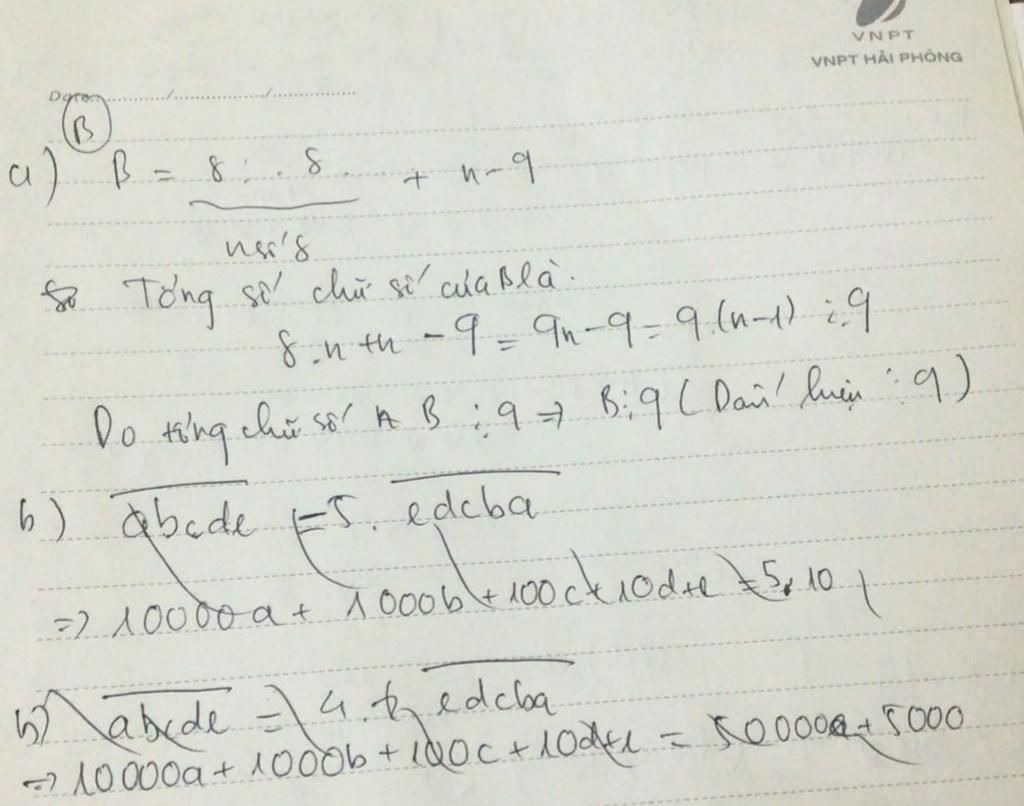 VNPT
VNPT HẢI PHÒNG
B
a) B = 8...8 + n - 9
n số 8
Tổng số chữ số của B là:
8.n + n - 9 = 9n - 9 = 9.(n-1) ⋮ 9
Do tổng chữ số B ⋮ 9 => B ⋮ 9 (Dấu hiệu ⋮ 9)
b) abcde = 5. edcba
=> 10000a + 1000b + 100c + 10d + e = 5.10
b) abcde = 4. edcba
=> 10000a + 1000b + 100c + 10d + e = 50000a + 5000